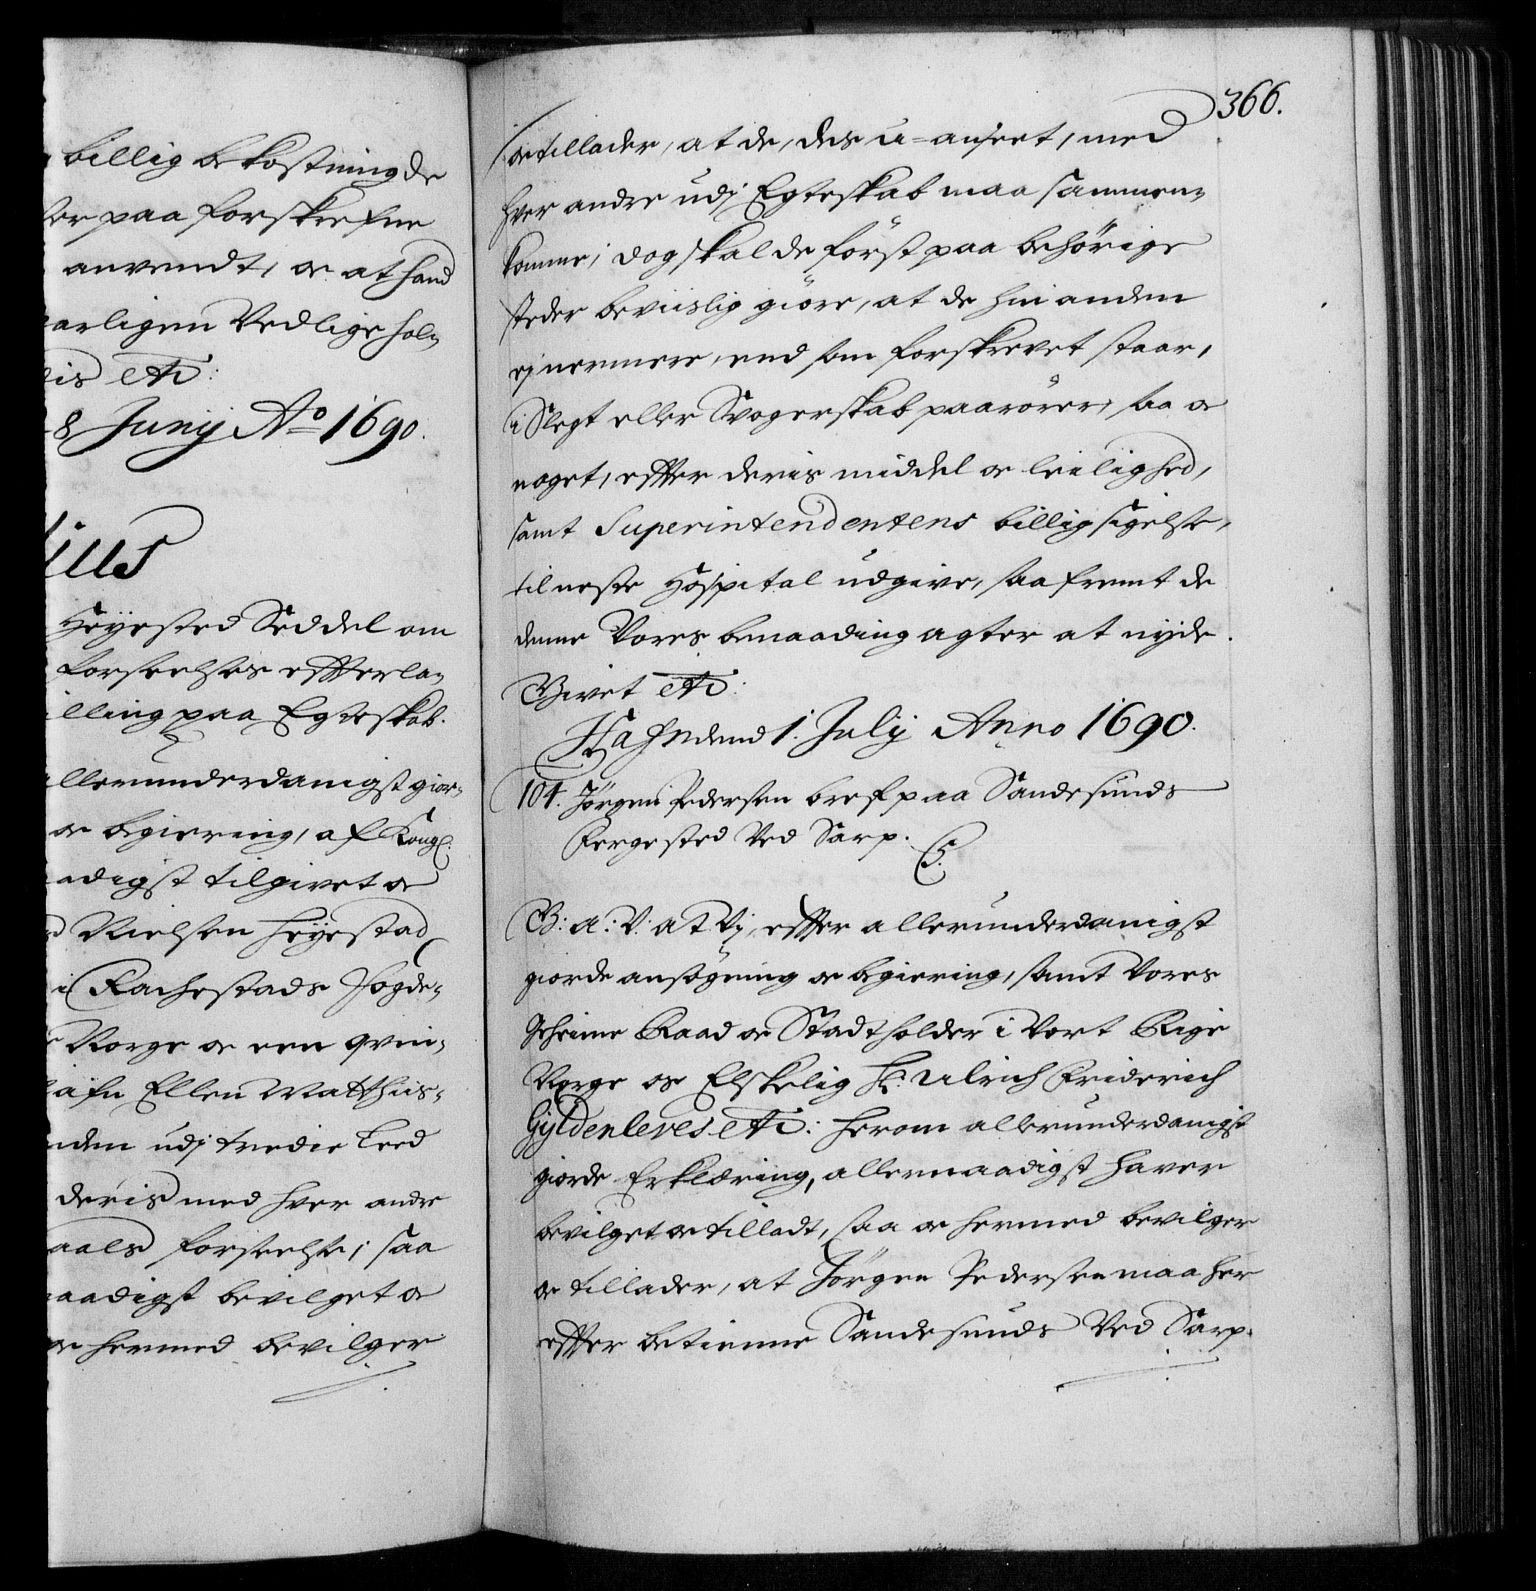 billig bekostning de
er paa forskrefne
anvendt, oc at hand
arligen Vedlige hol-
dis etc:
8 Junij Ao 1690.
Heyested Seddel om
forseelses effterla-
illing paa Egteskab.
allerunderdanigst gior-
oc begiering, af Kongl.
aadigst tilgivet oc
Nielsen Heyestad
i Rachestads Fogde-
Norge oc een qvin-
afn Ellen Matthis-
nden udj tredie Leed
deris med hver andre
maals forseelse; saa
naadigst bevilget oc
oc hermed bevilger
366.
oc tillader, at de, des u-anseet, med
hver andre udj Egteskab maa sammen-
komme; dog skal de først paa behørige
steder beviislig giøre, at de hin anden
ej nermere, end som forskrevet staar,
i Slegt eller Svogerskab paarører, saa oc
noget, effter deris middel oc leilighed,
samt Superintendentens billig sigelse,
til neste Hospital udgive, saa fremt de
denne Vores benaading agter at nyde.
Givet etc:
Hafn dend 1. Julij Anno 1690.
104. Jørgen Pedersen bref paa Sandesunds
Fergested Ved Sarp. C5.
G: A: V: at Vj, effter allerunderdanigst
giorde ansøgning oc begiering, samt Vores
Geheime Raad oc Stadtholder i Vort Rige
Norge os Elskelig Hr: Ulrich Friderich
Gyldenleves etc: herom allerunderdanigst
giorde Erklæring, allernaadigst haver
bevilget oc tilladt, saa oc hermed bevilger
oc tillader, at Jørgen Pedersen maa her
effter betienne Sandesunds Ved Sarp.